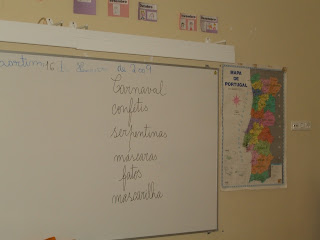 de 2009
Carnaval
confétis
serpentinas
máscaras
fatos
mascarilha
MAPA
DE
PORTUGAL